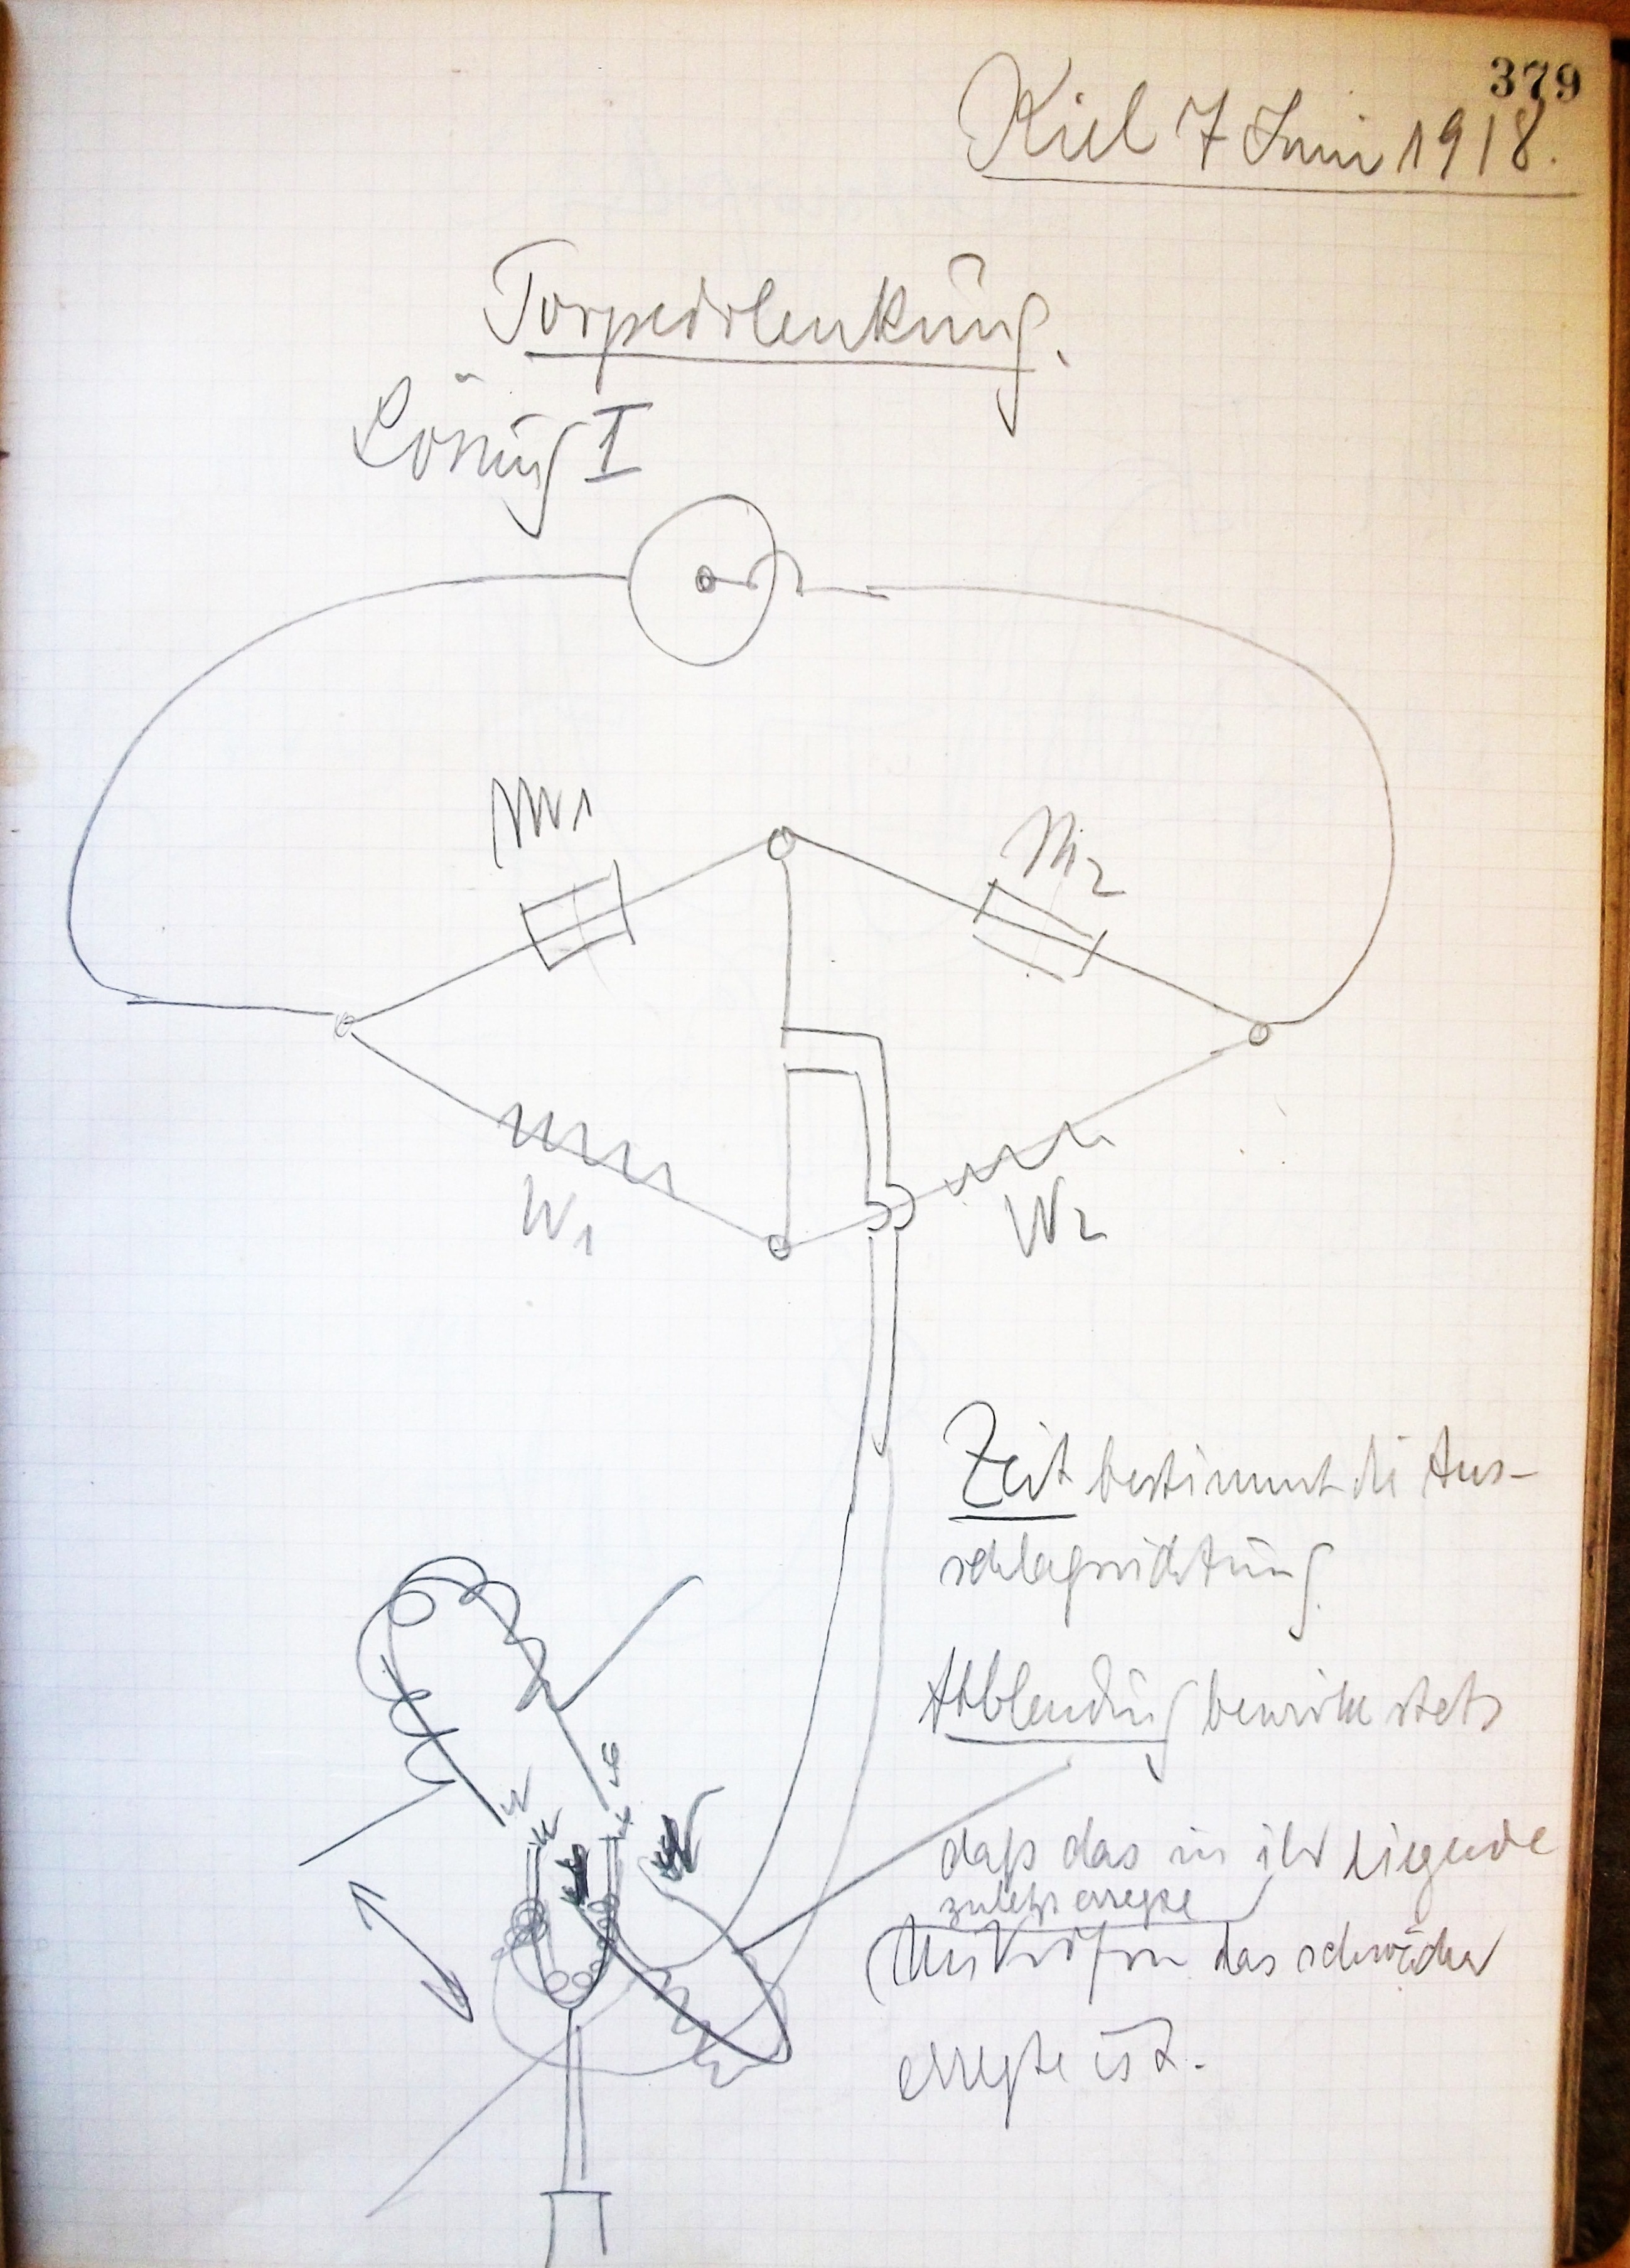 379
Kiel 7 Juni 1918.
Torpedolenkung.
Lösung I
M1
M2
W1
W2
Zeit bestimmt die Aus-
schlagsrichtung.
Abblendung bewirkt stets
daß das in ihr liegende
zuletzt erregte
Mikrofon das schwächer
erregte ist.